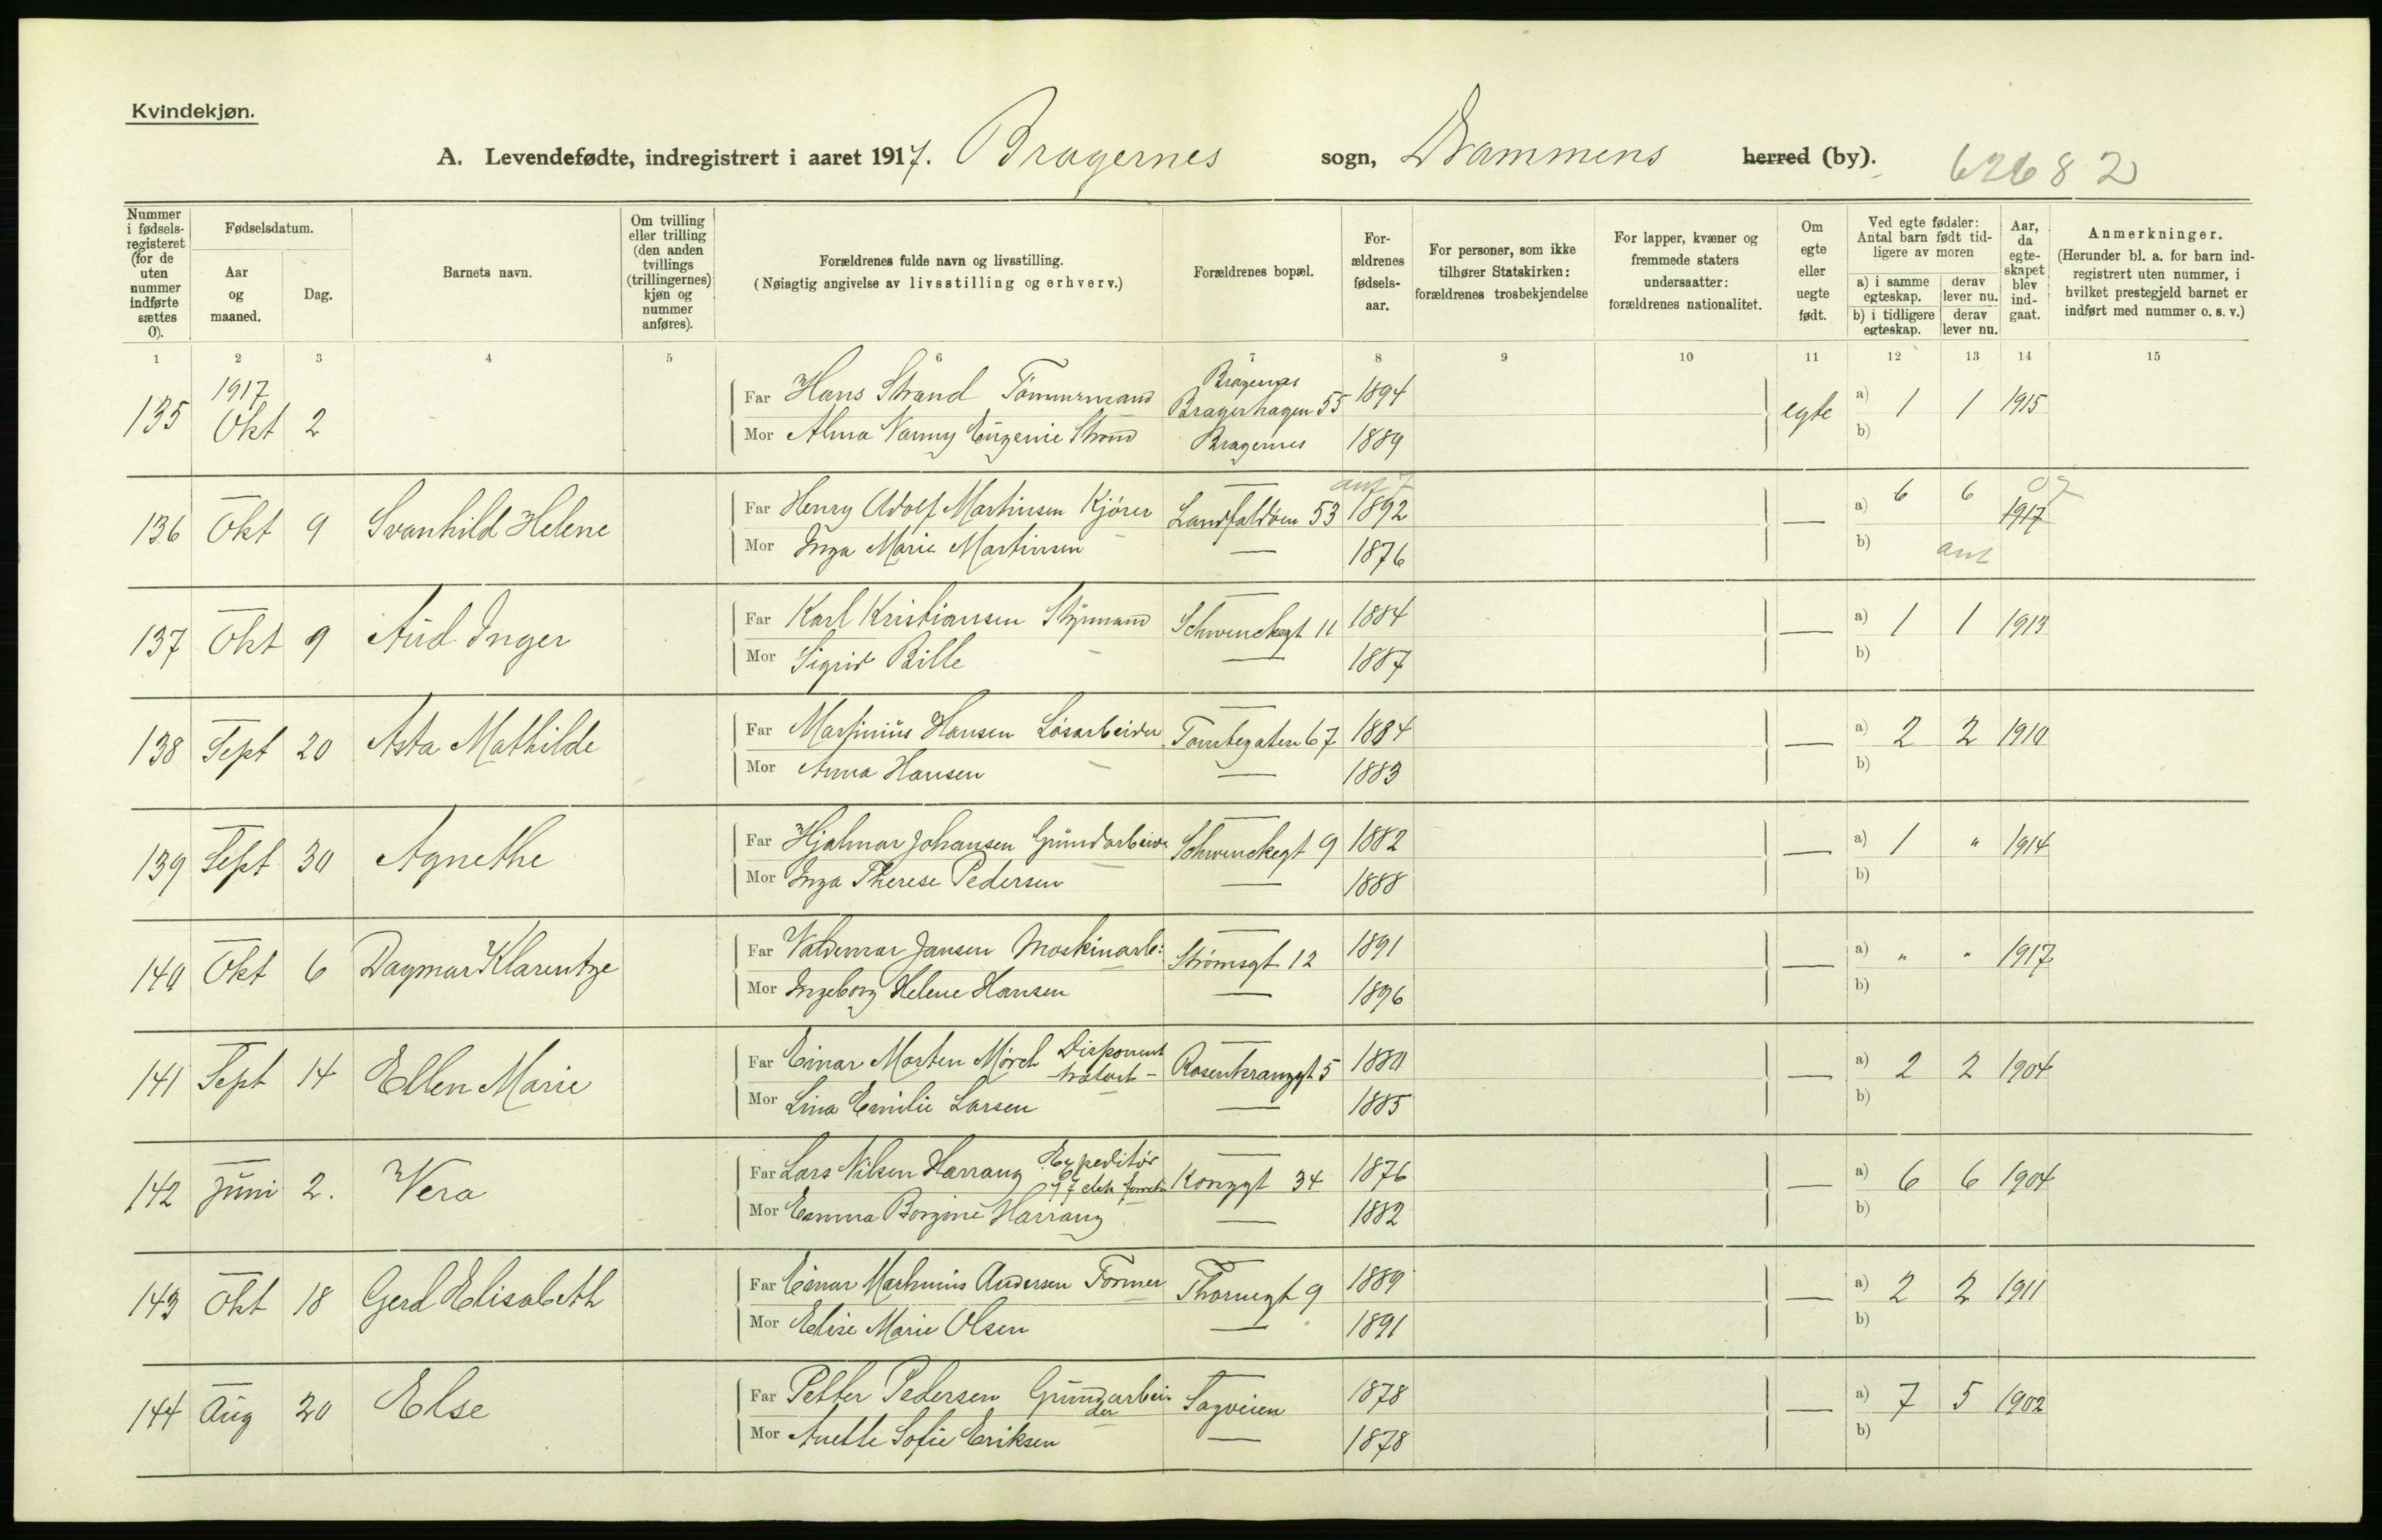 Kvindekjøn.
A. Levendefødte, indregistrert i aaret 1917. Bragernes sogn, Drammens herred (by). 62682
Nummer i fødsels-registeret (for de uten nummer indførte sættes 0).
Fødselsdatum.
Aar og maaned.
Dag.
Barnets navn.
Om tvilling eller trilling (den anden tvillings (trillingernes) kjøn og nummer anføres).
Forældrenes fulde navn og livsstilling.
(Nøiagtig angivelse av livsstilling og erhverv.)
Forældrenes bopæl.
For-ældrenes fødsels-aar.
For personer, som ikke tilhører Statskirken: forældrenes trosbekjendelse
For lapper, kvæner og fremmede staters undersaatter: forældrenes nationalitet.
Om egte eller uegte født.
Ved egte fødsler: Antal barn født tid-ligere av moren
a) i samme egteskap. derav lever nu.
b) i tidligere egteskap. derav lever nu.
Aar, da egte-skapet blev ind-gaat.
Anmerkninger.
(Herunder bl. a. for barn ind-registrert uten nummer, i hvilket prestegjeld barnet er indført med nummer o. s. v.)
1 2 3 4 5 6 7 8 9 10 11 12 13 14 15
1917 Bragernes
135 Okt 2 Far Hans Strand Tømmermand Bragerhagen 55 1894 egte a) 1 1 1915
Mor Alma Nanny Eugenie Strand Bragernes 1889 b)
ant 7 02
136 Okt 9 Svanhild Helene Far Henry Adolf Martinsen Kjører Landfaldøen 53 1892 — a) 6 6 1917
Mor Inga Marie Martinsen — 1876 b) ant
137 Okt 9 Aud Inger Far Karl Kristiansen Styrmand Schwenckegt 11 1884 — a) 1 1 1913
Mor Sigrid Bille — 1887 b)
138 Sept 20 Asta Mathilde Far Martinius Hansen Løsarbeider Tomtegaten 67 1884 — a) 2 2 1910
Mor Anna Hansen — 1883 b)
139 Sept 30 Agnethe Far Hjalmar Johansen Grundarbeider Schwenckegt 9 1882 — a) 1 " 1914
Mor Inga Therese Pedersen — 1888 b)
140 Okt 6 Dagmar Klarentze Far Valdemar Jansen Maskinarb: Strømsgt 12 1891 — a) " " 1917
Mor Ingeborg Helene Hansen — 1896 b)
141 Sept 14 Ellen Marie Far Einar Morten Mørch Disponent Rosenkranzgt 5 1880 — a) 2 2 1904
Mor Lina Emilie Larsen — 1885 b)
142 Juni 2. Vera Far Lars Nilsen Harrang Expeditør Konggt 34 1876 — a) 6 6 1904
Mor Emma Borgine Harrang — 1882 b)
143 Okt 18 Gerd Elisabeth Far Einar Marhinius Andersen Former Thornegt 9 1889 — a) 2 2 1911
Mor Elise Marie Olsen — 1891 b)
144 Aug 20 Else Far Petter Pedersen Grundarbeider Sagveien 1878 — a) 7 5 1902
Mor Anette Sofie Eriksen — 1878 b)